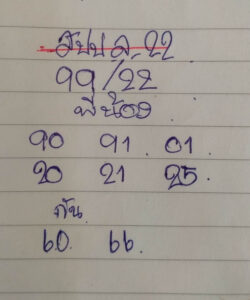 สปป ล. 22
99/22
พี่น้อง
90 91 01
20 21 25.
กัน
60. 66.